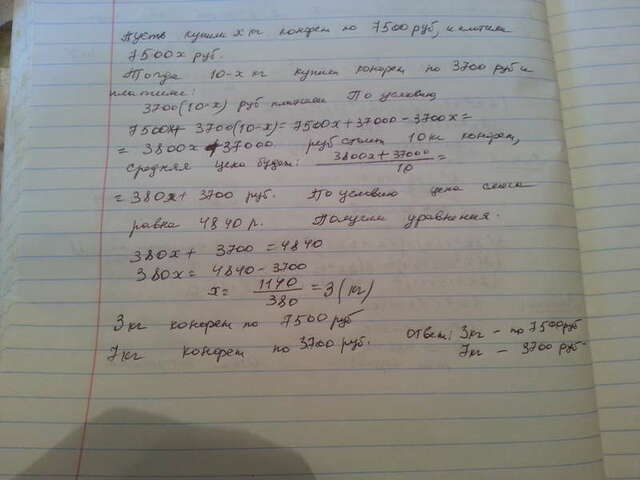 Пусть купили x кг конфет по 7500 руб, и платили
7500x руб.
Тогда 10-x кг купили конфет по 3700 руб и
платили:
3700(10-x) руб платили По условию
7500x + 3700(10-x) = 7500x + 37000 - 3700x =
= 3800x + 37000 руб стоит 10 кг конфет,
средняя цена будет: 3800x + 37000 / 10 =
= 380x + 3700 руб. По условию цена смеси
равна 4840 р. Получим уравнения.
380x + 3700 = 4840
380x = 4840 - 3700
x = 1140 / 380 = 3 (кг)
3кг конфет по 7500 руб
7кг конфет по 3700 руб. Ответ: 3кг - по 7500 руб
7кг - 3700 руб.